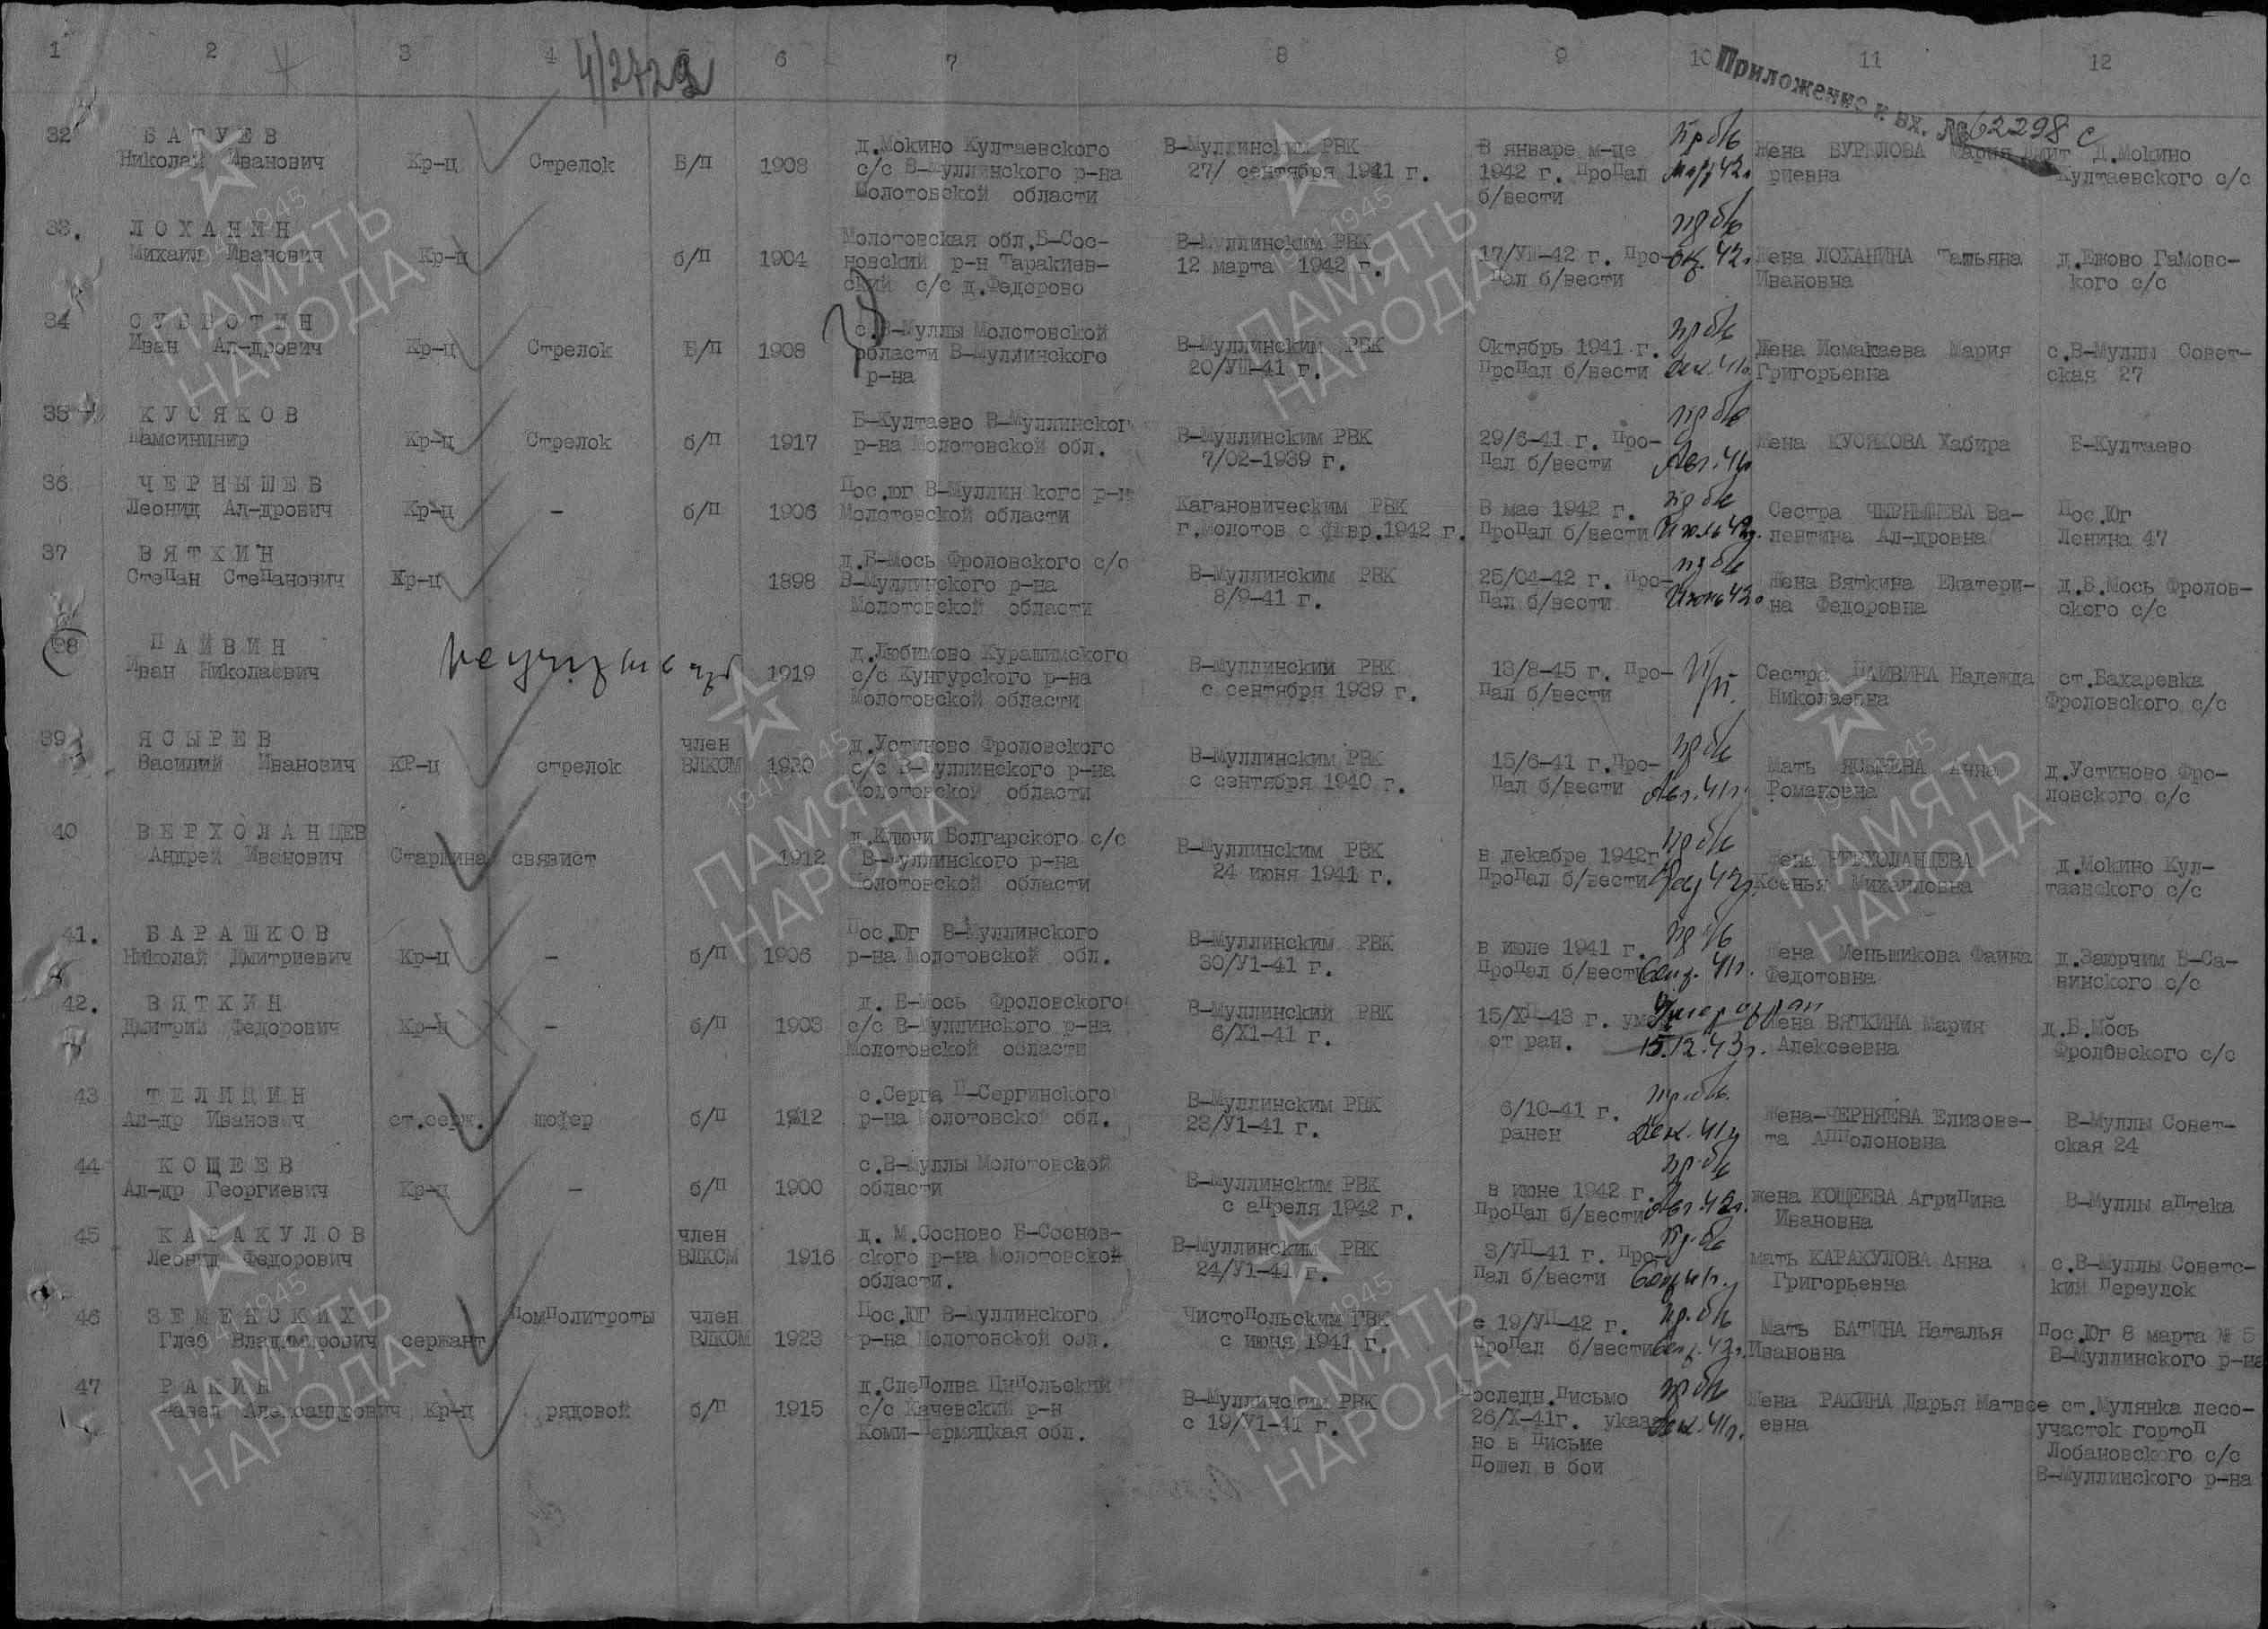 1 2 3 4 5 6 7 8 9 10 11 12
4/2723
Приложение к вх. №62298с
32 БАТУЕВ
Николай Иванович Кр-ц Стрелок Б/п 1908
д.Мокино Култаевского
с/с В-Муллинского р-на
Молотовской области
В-Муллинским РВК
27/ сентября 1941 г.
В январе м-це
1942 г. пропал
б/вести
пр б/в
март 42г.
Жена БУРЫЛОВА Мария Дмит
риевна
Д.Мокино
Култаевского с/с
33. ЛОХАНИН
Михаил Иванович Кр-ц б/п 1904
Молотовская обл.Б-Сос-
новский р-н Таракиев-
ский с/с д.Федорово
В-Муллинским РВК
12 марта 1942 г.
17/УШ-42 г. Про-
пал б/вести
пр б/в
ок. 42г.
Жена ЛОХАНИНА Татьяна
Ивановна
д.Ежово Гамовс-
кого с/с
34 СУББОТИН
Иван Ал-дрович Кр-ц Стрелок Б/п 1908
с.В-Муллы Молотовской
области В-Муллинского
р-на
В-Муллинским РВК
20/УШ-41 г.
Октябрь 1941 г.
Пропал б/вести
пр б/в
Дек. 41г.
Жена Исмакаева Мария
Григорьевна
с.В-Муллы Совет-
ская 27
35 КУСЯКОВ
Шамсининир Кр-ц Стрелок б/п 1917
Б-Култаево В-Муллинског
р-на Молотовской обл.
В-Муллинским РВК
7/02-1939 г.
29/6-41 г. Про-
пал б/вести
пр б/в
Авг. 41г.
Жена КУСЯКОВА Хабира
Б-Култаево
36 ЧЕРНЫШЕВ
Леонид Ал-дрович Кр-ц - б/п 1906
Пос.Юг В-Муллин кого р-н
Молотовской области
Кагановическим РВК
г.Молотов с февр.1942 г.
В мае 1942 г.
Пропал б/вести
пр б/в
Июль 42г.
Сестра ЧЕРНЫШЕВА Ва-
лентина Ал-дровна
Пос.Юг
Ленина 47
37 ВЯТКИН
Степан Степанович Кр-ц 1898
д.Б-Мось Фроловского с/с
В-Муллинского р-на
Молотовской области
В-Муллинским РВК
8/9-41 г.
25/04-42 г. Про-
пал б/вести
пр б/в
Июнь 42г
Жена Вяткина Екатери-
на Федоровна
д.Б.Мось Фролов-
ского с/с
38 ПАЙВИН
Иван Николаевич 1919
д.Любимово Курашимского
с/с Кунгурского р-на
Молотовской области
В-Муллинский РВК
с сентября 1939 г.
13/8-45 г. Про-
пал б/вести
Сестра ПАЙВИНА Надежда
Николаевна
ст.Бахаревка
Фроловского с/с
39 ЯСЫРЕВ
Василий Иванович КР-ц стрелок член
ВЛКСМ 1920
д.Устиново Фроловского
с/с В-Муллинского р-на
Молотовской области
В-Муллинским РВК
с сентября 1940 г.
15/6-41 г.Про-
пал б/вести
пр б/в
Авг. 41г.
Мать ЯСЫРЕВА Анна
Романовна
д.Устиново Фро-
ловского с/с
40 ВЕРХОЛАНЦЕВ
Андрей Иванович Старшина связист 1912
д.Ключи Болгарского с/с
В-Муллинского р-на
Молотовской области
В-Муллинским РВК
24 июня 1941 г.
в декабре 1942г
Пропал б/вести
пр б/в
Жена ВЕРХОЛАНЦЕВА
Ксенья Михайловна
д.Мокино Кул-
таевского с/с
41. БАРАШКОВ
Николай Дмитриевич Кр-ц - б/п 1906
Пос.Юг В-Муллинского
р-на Молотовской обл.
В-Муллинским РВК
30/У1-41 г.
в июле 1941 г.
Пропал б/вести
пр б/в
Сент. 41г.
Жена Меньшикова Фаина
Федотовна
д.Заюрчим Б-Са-
винского с/с
42. ВЯТКИН
Дмитрий Федорович Кр-ц - б/п 1903
д. Б-Мось Фроловского
с/с В-Муллинского р-на
Молотовской области
В-Муллинский РВК
6/Х1-41 г.
15/ХП-43 г. умер
от ран.
Умер от ран
15.12.43г.
Жена ВЯТКИНА Мария
Алексеевна
д.Б.Мось
Фроловского с/с
43 ТЕЛИЦИН
Ал-др Иванович ст.серж. шофер б/п 1912
с.Серга П-Сергинского
р-на Молотовской обл.
В-Муллинским РВК
23/У1-41 г.
6/10-41 г.
ранен
пр. б/в.
Дек. 41г
Жена-ЧЕРНЯЕВА Елизове-
та Апполоновна
В-Муллы Совет-
ская 24
44 КОЩЕЕВ
Ал-др Георгиевич Кр-ц - б/п 1900
с.В-Муллы Молотовской
области
В-Муллинским РВК
с апреля 1942 г.
в июне 1942 г.
Пропал б/вести
пр. б/в
Авг. 42г.
жена КОЩЕЕВА Агрипина
Ивановна
В-Муллы аптека
45 КАРАКУЛОВ
Леонид Федорович член
ВЛКСМ 1916
д. М.Сосново Б-Соснов-
ского р-на Молотовской
области.
В-Муллинским РВК
24/У1-41 г.
3/УП-41 г. Про-
пал б/вести
пр. б/в
Сент 41г.
мать КАРАКУЛОВА Анна
Григорьевна
с.В-Муллы Советс-
кий переулок
46 ЗЕМЕНСКИХ
Глеб Владимирович сержант Помполитроты член
ВЛКСМ 1923
Пос.ЮГ В-Муллинского
р-на Молотовской обл.
Чистопольским ГВК
с июня 1941 г.
с 19/УП-42 г.
Пропал б/вести
пр. б/в
Сент. 42г.
Мать БАТИНА Наталья
Ивановна
Пос.Юг 8 марта № 5
В-Муллинского р-на
47 РАКИН
Павел Александрович Кр-ц рядовой б/п 1915
д.Слеполва Ципольский
с/с Качевский р-н
Коми-Пермяцкая обл.
В-Муллинским РВК
с 19/У1-41 г.
Последн.письмо
26/Х-41г. указа
но в письме
Пошел в бой
пр б/в
Дек. 41г.
Жена РАКИНА Дарья Матвее
евна
ст.Мулянка лесо-
участок гортоп
Лобановского с/с
В-Муллинского р-на
1941 1945
ПАМЯТЬ
НАРОДА